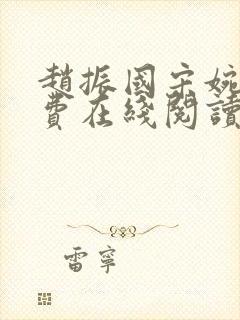 趙振國宋婉
費在綫閱讀
雷寧